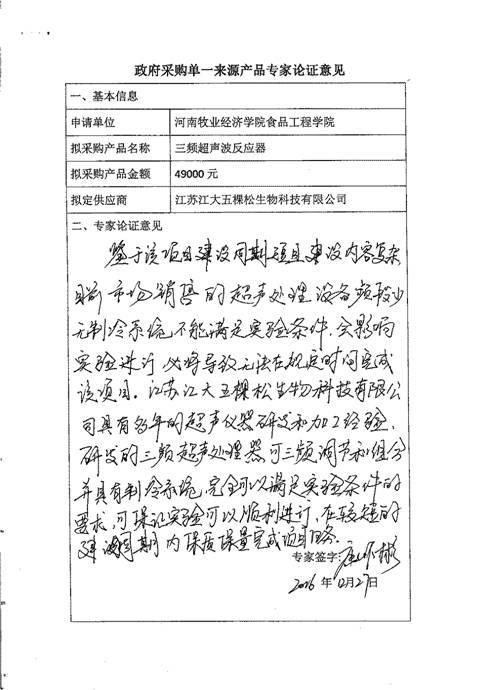 政府采购单一来源产品专家论证意见
一、基本信息
申请单位 河南牧业经济学院食品工程学院
拟采购产品名称 三频超声波反应器
拟采购产品金额 49000元
拟定供应商 江苏江大五棵松生物科技有限公司
二、专家论证意见
鉴于该项目建设周期短且建设内容复杂
目前市场销售的超声处理设备频较少
无制冷系统不能满足实验条件,会影响
实验进行,必将导致无法在规定时间完成
该项目。江苏江大五棵松生物科技有限公
司具有多年的超声仪器研发和加工经验,
研发的三频超声处理器可三频调节和组合
并具有制冷系统,完全可以满足实验条件的
要求,可保证实验可以顺利进行,在较短的
建设周期内保质保量完成项目任务。
专家签字:
2016年12月27日